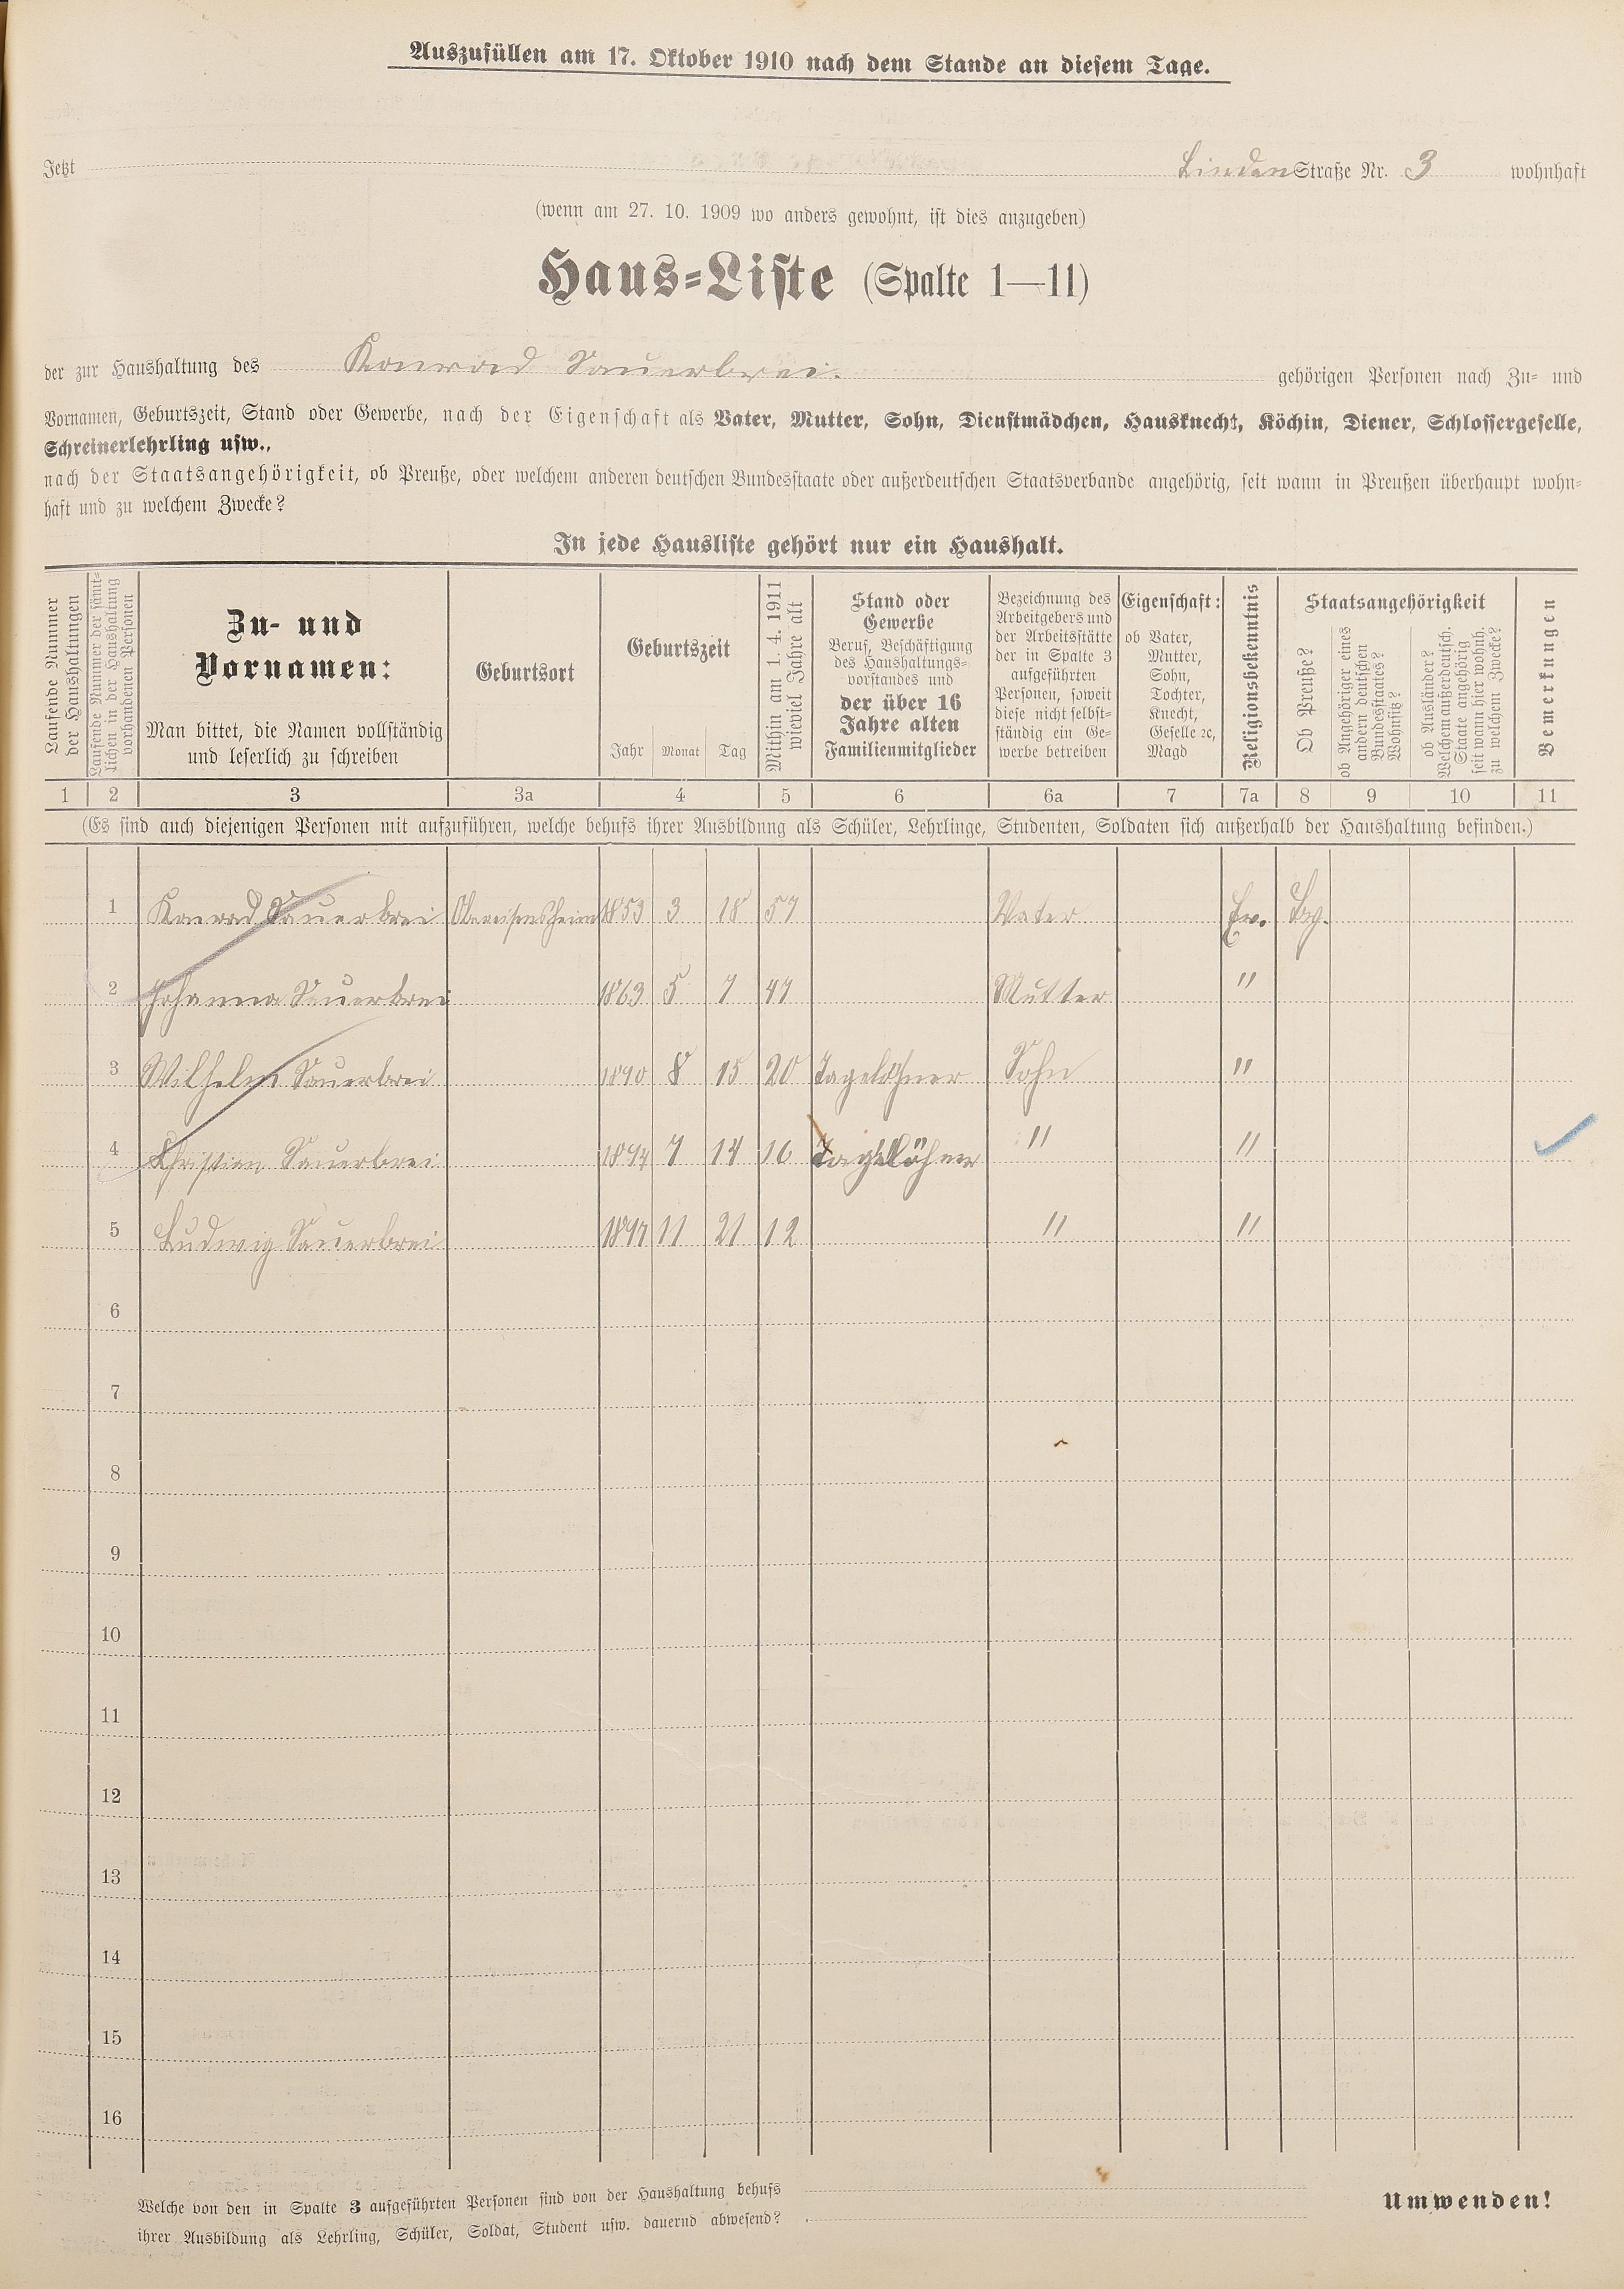 Auszufüllen am 17. Oktober 1910 nach dem Stande an diesem Tage.
Jetzt Linden Straße Nr. 3 wohnhaft
(wenn am 27. 10. 1909 wo anders gewohnt, ist dies anzugeben)
Haus-Liste (Spalte 1—11)
der zur Haushaltung des Konrad Sauerbrei. gehörigen Personen nach Zu- und
Vornamen, Geburtszeit, Stand oder Gewerbe, nach der Eigenschaft als Vater, Mutter, Sohn, Dienstmädchen, Hausknecht, Köchin, Diener, Schlossergeselle,
Schreinerlehrling usw.,
nach der Staatsangehörigkeit, ob Preuße, oder welchem anderen deutschen Bundesstaate oder außerdeutschen Staatsverbande angehörig, seit wann in Preußen überhaupt wohn-
haft und zu welchem Zwecke?
In jede Hausliste gehört nur ein Haushalt.
Laufende Nummer
der Haushaltungen
Laufende Nummer der sämt-
lichen in der Haushaltung
vorhandenen Personen
Zu- und
Vornamen:
Man bittet, die Namen vollständig
und leserlich zu schreiben
Geburtsort
Geburtszeit
Jahr Monat Tag
Mithin am 1. 4. 1911
wieviel Jahre alt
Stand oder
Gewerbe
Beruf, Beschäftigung
des Haushaltungs-
vorstandes und
der über 16
Jahre alten
Familienmitglieder
Bezeichnung des
Arbeitgebers und
der Arbeitsstätte
der in Spalte 3
aufgeführten
Personen, soweit
diese nicht selbst-
ständig ein Ge-
werbe betreiben
Eigenschaft:
ob Vater,
Mutter,
Sohn,
Tochter,
Knecht,
Geselle ꝛc,
Magd
Religionsbekenntnis
Staatsangehörigkeit
Ob Preuße?
ob Angehöriger eines
andern deutschen
Bundesstaates?
Wohnsitz?
ob Ausländer?
Welchem außerdeutsch.
Staate angehörig
seit wann hier wohnh.
zu welchem Zwecke?
Bemerkungen
1 2 3 3a 4 5 6 6a 7 7a 8 9 10 11
(Es sind auch diejenigen Personen mit aufzuführen, welche behufs ihrer Ausbildung als Schüler, Lehrlinge, Studenten, Soldaten sich außerhalb der Haushaltung befinden.)
1 Konrad Sauerbrei Obereisensheim 1853 3 18 57 Vater Ev.
2 Johanna Sauerbrei 1863 5 7 47 Mutter "
3 Wilhelm Sauerbrei 1890 8 15 20 Tagelöhner Sohn "
4 Christian Sauerbrei 1894 7 14 16 Tagelöhner " "
5 Ludwig Sauerbrei 1897 11 21 12 " "
6
7
8
9
10
11
12
13
14
15
16
Welche von den in Spalte 3 aufgeführten Personen sind von der Haushaltung behufs
ihrer Ausbildung als Lehrling, Schüler, Soldat, Student usw. dauernd abwesend?
Umwenden!